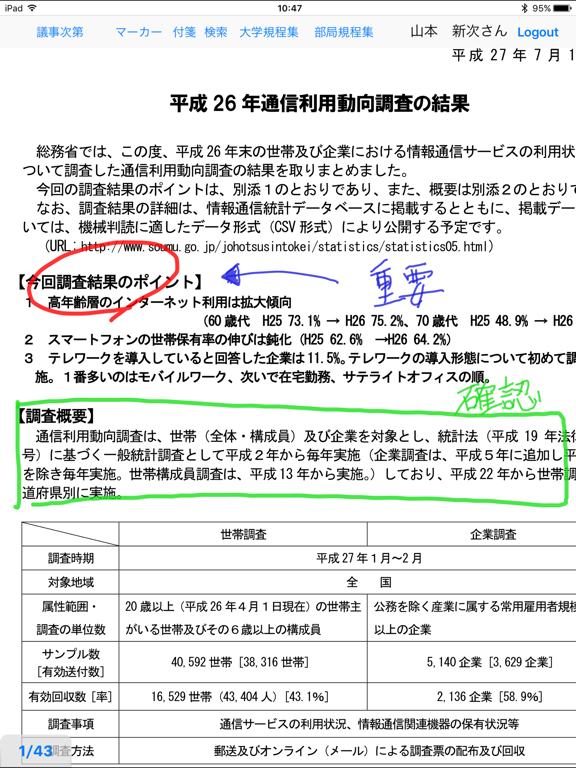 iPad 10:47 95%
議事次第 マーカー 付箋 検索 大学規程集 部局規程集 山本 新次さん Logout
平成 27 年 7 月 1
平成 26 年通信利用動向調査の結果
総務省では、この度、平成 26 年末の世帯及び企業における情報通信サービスの利用状
ついて調査した通信利用動向調査の結果を取りまとめました。
今回の調査結果のポイントは、別添１のとおりであり、また、概要は別添２のとおりで
なお、調査結果の詳細は、情報通信統計データベースに掲載するとともに、掲載デー
いては、機械判読に適したデータ形式（CSV 形式）により公開する予定です。
（URL：http://www.soumu.go.jp/johotsusintokei/statistics/statistics05.html）
【今回調査結果のポイント】 重要
１ 高年齢層のインターネット利用は拡大傾向
（60 歳代 H25 73.1% → H26 75.2%、70 歳代 H25 48.9% → H26
２ スマートフォンの世帯保有率の伸びは鈍化（H25 62.6% →H26 64.2%）
３ テレワークを導入していると回答した企業は 11.5%。テレワークの導入形態について初めて調
施。１番多いのはモバイルワーク、次いで在宅勤務、サテライトオフィスの順。
確認
【調査概要】
通信利用動向調査は、世帯（全体・構成員）及び企業を対象とし、統計法（平成 19 年法律
号）に基づく一般統計調査として平成２年から毎年実施（企業調査は、平成５年に追加し平
を除き毎年実施。世帯構成員調査は、平成 13 年から実施。）しており、平成 22 年から世帯調
道府県別に実施。
世帯調査 企業調査
調査時期 平成 27 年１月～２月
対象地域 全 国
属性範囲・ 20 歳以上（平成 26 年４月１日現在）の世帯主 公務を除く産業に属する常用雇用者規模
調査の単位数 がいる世帯及びその６歳以上の構成員 以上の企業
サンプル数 40,592 世帯［38,316 世帯］ 5,140 企業［3,629 企業］
［有効送付数］
有効回収数［率］ 16,529 世帯（43,404 人）［43.1%］ 2,136 企業［58.9%］
調査事項 通信サービスの利用状況、情報通信関連機器の保有状況等
1/43 調査方法 郵送及びオンライン（メール）による調査票の配布及び回収